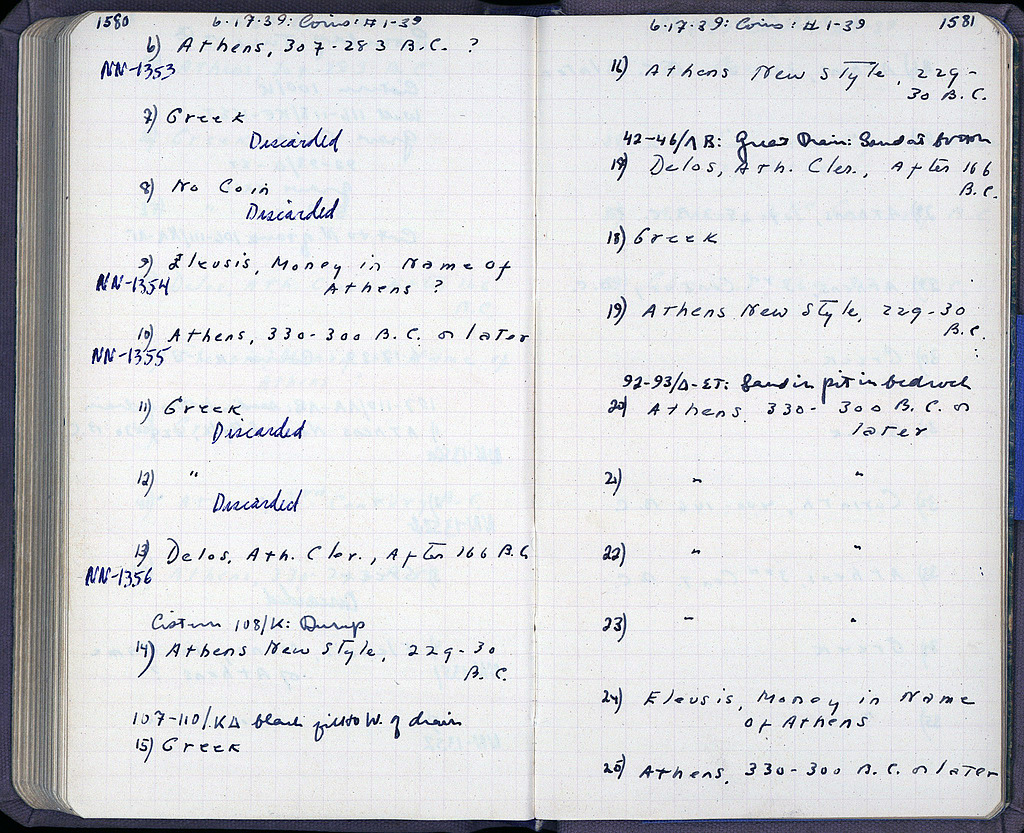 1580
6·17·39: Coins: #1-39
6) Athens, 307-283 B.C. ?
NN-1353
7) Greek
Discarded
8) No Coin
Discarded
9) Eleusis, Money in Name of
Athens ?
NN-1354
10) Athens, 330-300 B.C. or later
NN-1355
11) Greek
Discarded
12) "
Discarded
13) Delos, Ath. Cler., After 166 B.C.
NN-1356
Cistern 108/K: Dump
14) Athens New Style, 229-30
B.C.
107-110/ΚΔ black fill to W. of drain
15) Greek
6·17·39: Coins: #1-39
1581
16) Athens New Style, 229-
30 B.C.
42-46/ΛΒ: Great Drain: Sand at bottom
17) Delos, Ath. Cler., After 166
B.C.
18) Greek
19) Athens New Style, 229-30
B.C.
92-93/Δ-ΣΤ: Sand in pit in bedrock
20) Athens 330-300 B.C. or
later
21) " "
22) " "
23) " "
24) Eleusis, Money in Name
of Athens
25) Athens, 330-300 B.C. or later